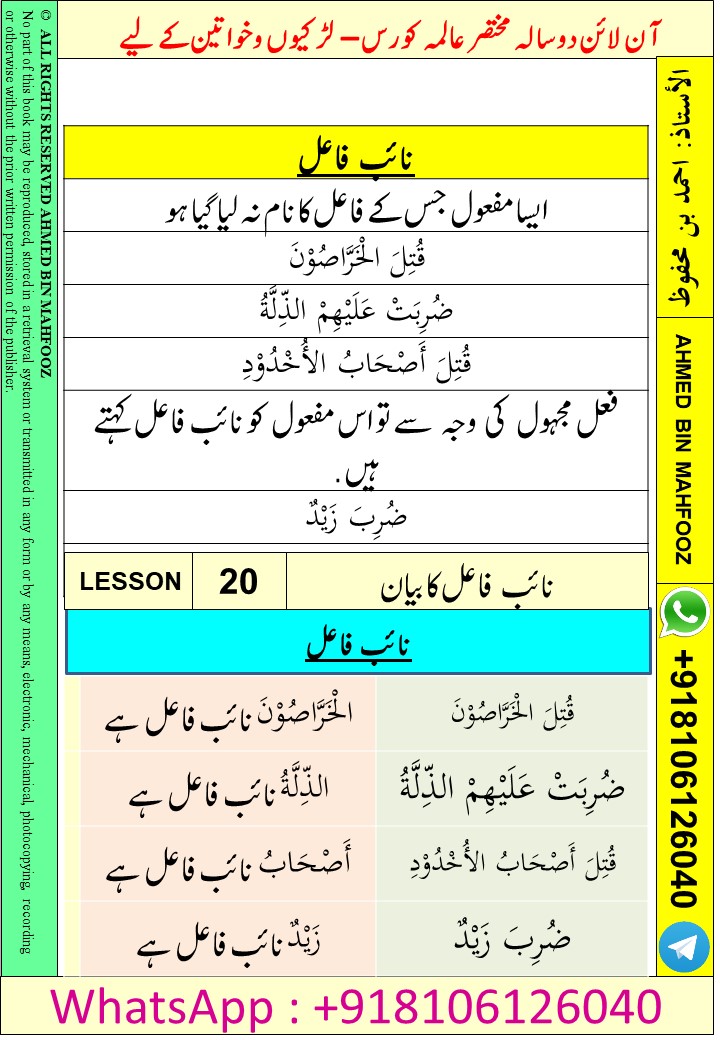 آن لائن دو سالہ مختصر عالمہ کورس – لڑکیوں وخواتین کے لیے
© ALL RIGHTS RESERVED AHMED BIN MAHFOOZ
No part of this book may be reproduced, stored in a retrieval system or transmitted in any form or by any means, electronic, mechanical, photocopying, recording
or otherwise without the prior written permission of the publisher.
نائب فاعل
ایسا مفعول جس کے فاعل کا نام نہ لیا گیا ہو
قُتِلَ الْخَرَّاصُوْنَ
ضُرِبَتْ عَلَيْهِمْ الذِّلَّةُ
قُتِلَ أَصْحَابُ الأُخْدُوْدِ
فعل مجہول کی وجہ سے تو اس مفعول کو نائب فاعل کہتے
ہیں.
ضُرِبَ زَيْدٌ
نائب فاعل کا بیان 20 LESSON
نائب فاعل
قُتِلَ الْخَرَّاصُوْنَ الْخَرَّاصُوْنَ نائب فاعل ہے
ضُرِبَتْ عَلَيْهِمْ الذِّلَّةُ الذِّلَّةُ نائب فاعل ہے
قُتِلَ أَصْحَابُ الأُخْدُوْدِ أَصْحَابُ نائب فاعل ہے
ضُرِبَ زَيْدٌ زَيْدٌ نائب فاعل ہے
الأستاذ: احمد بن محفوظ
AHMED BIN MAHFOOZ
+918106126040
WhatsApp : +918106126040